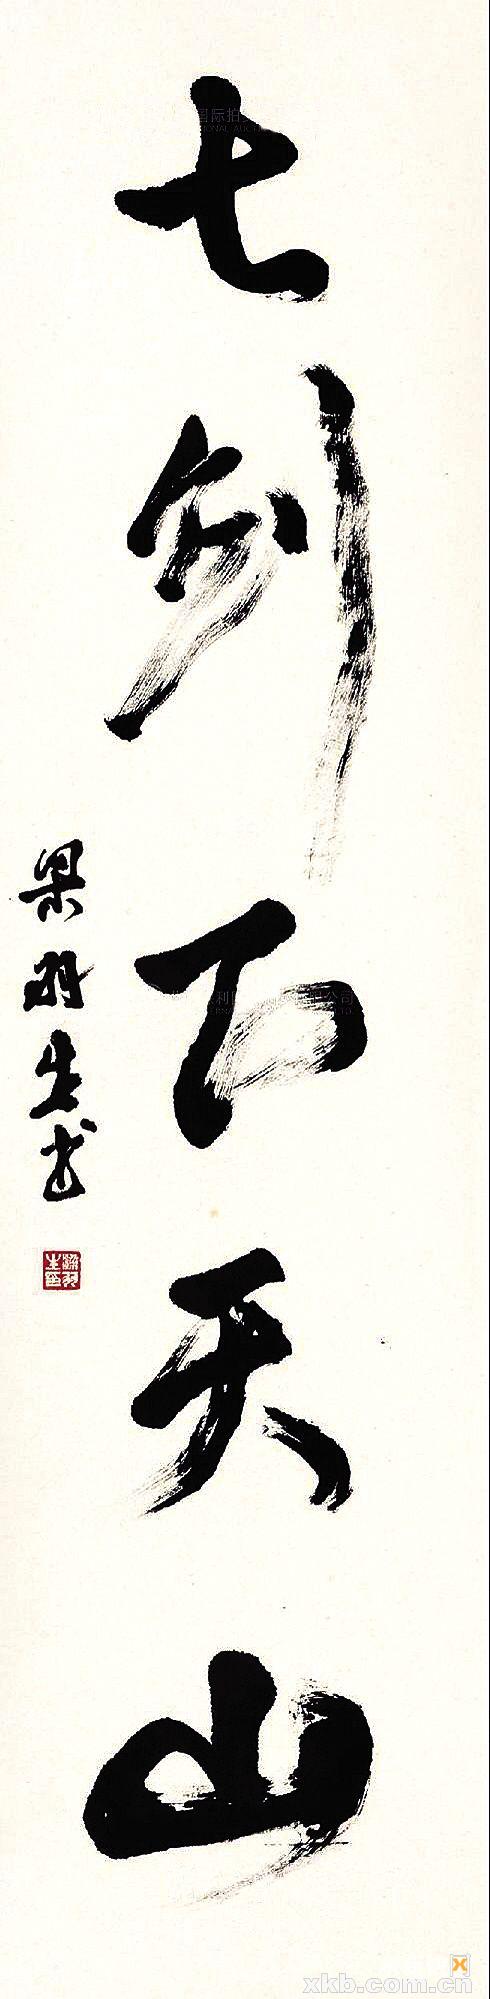 七剑下天山
梁羽生书
梁羽生印
xkb.com.cn